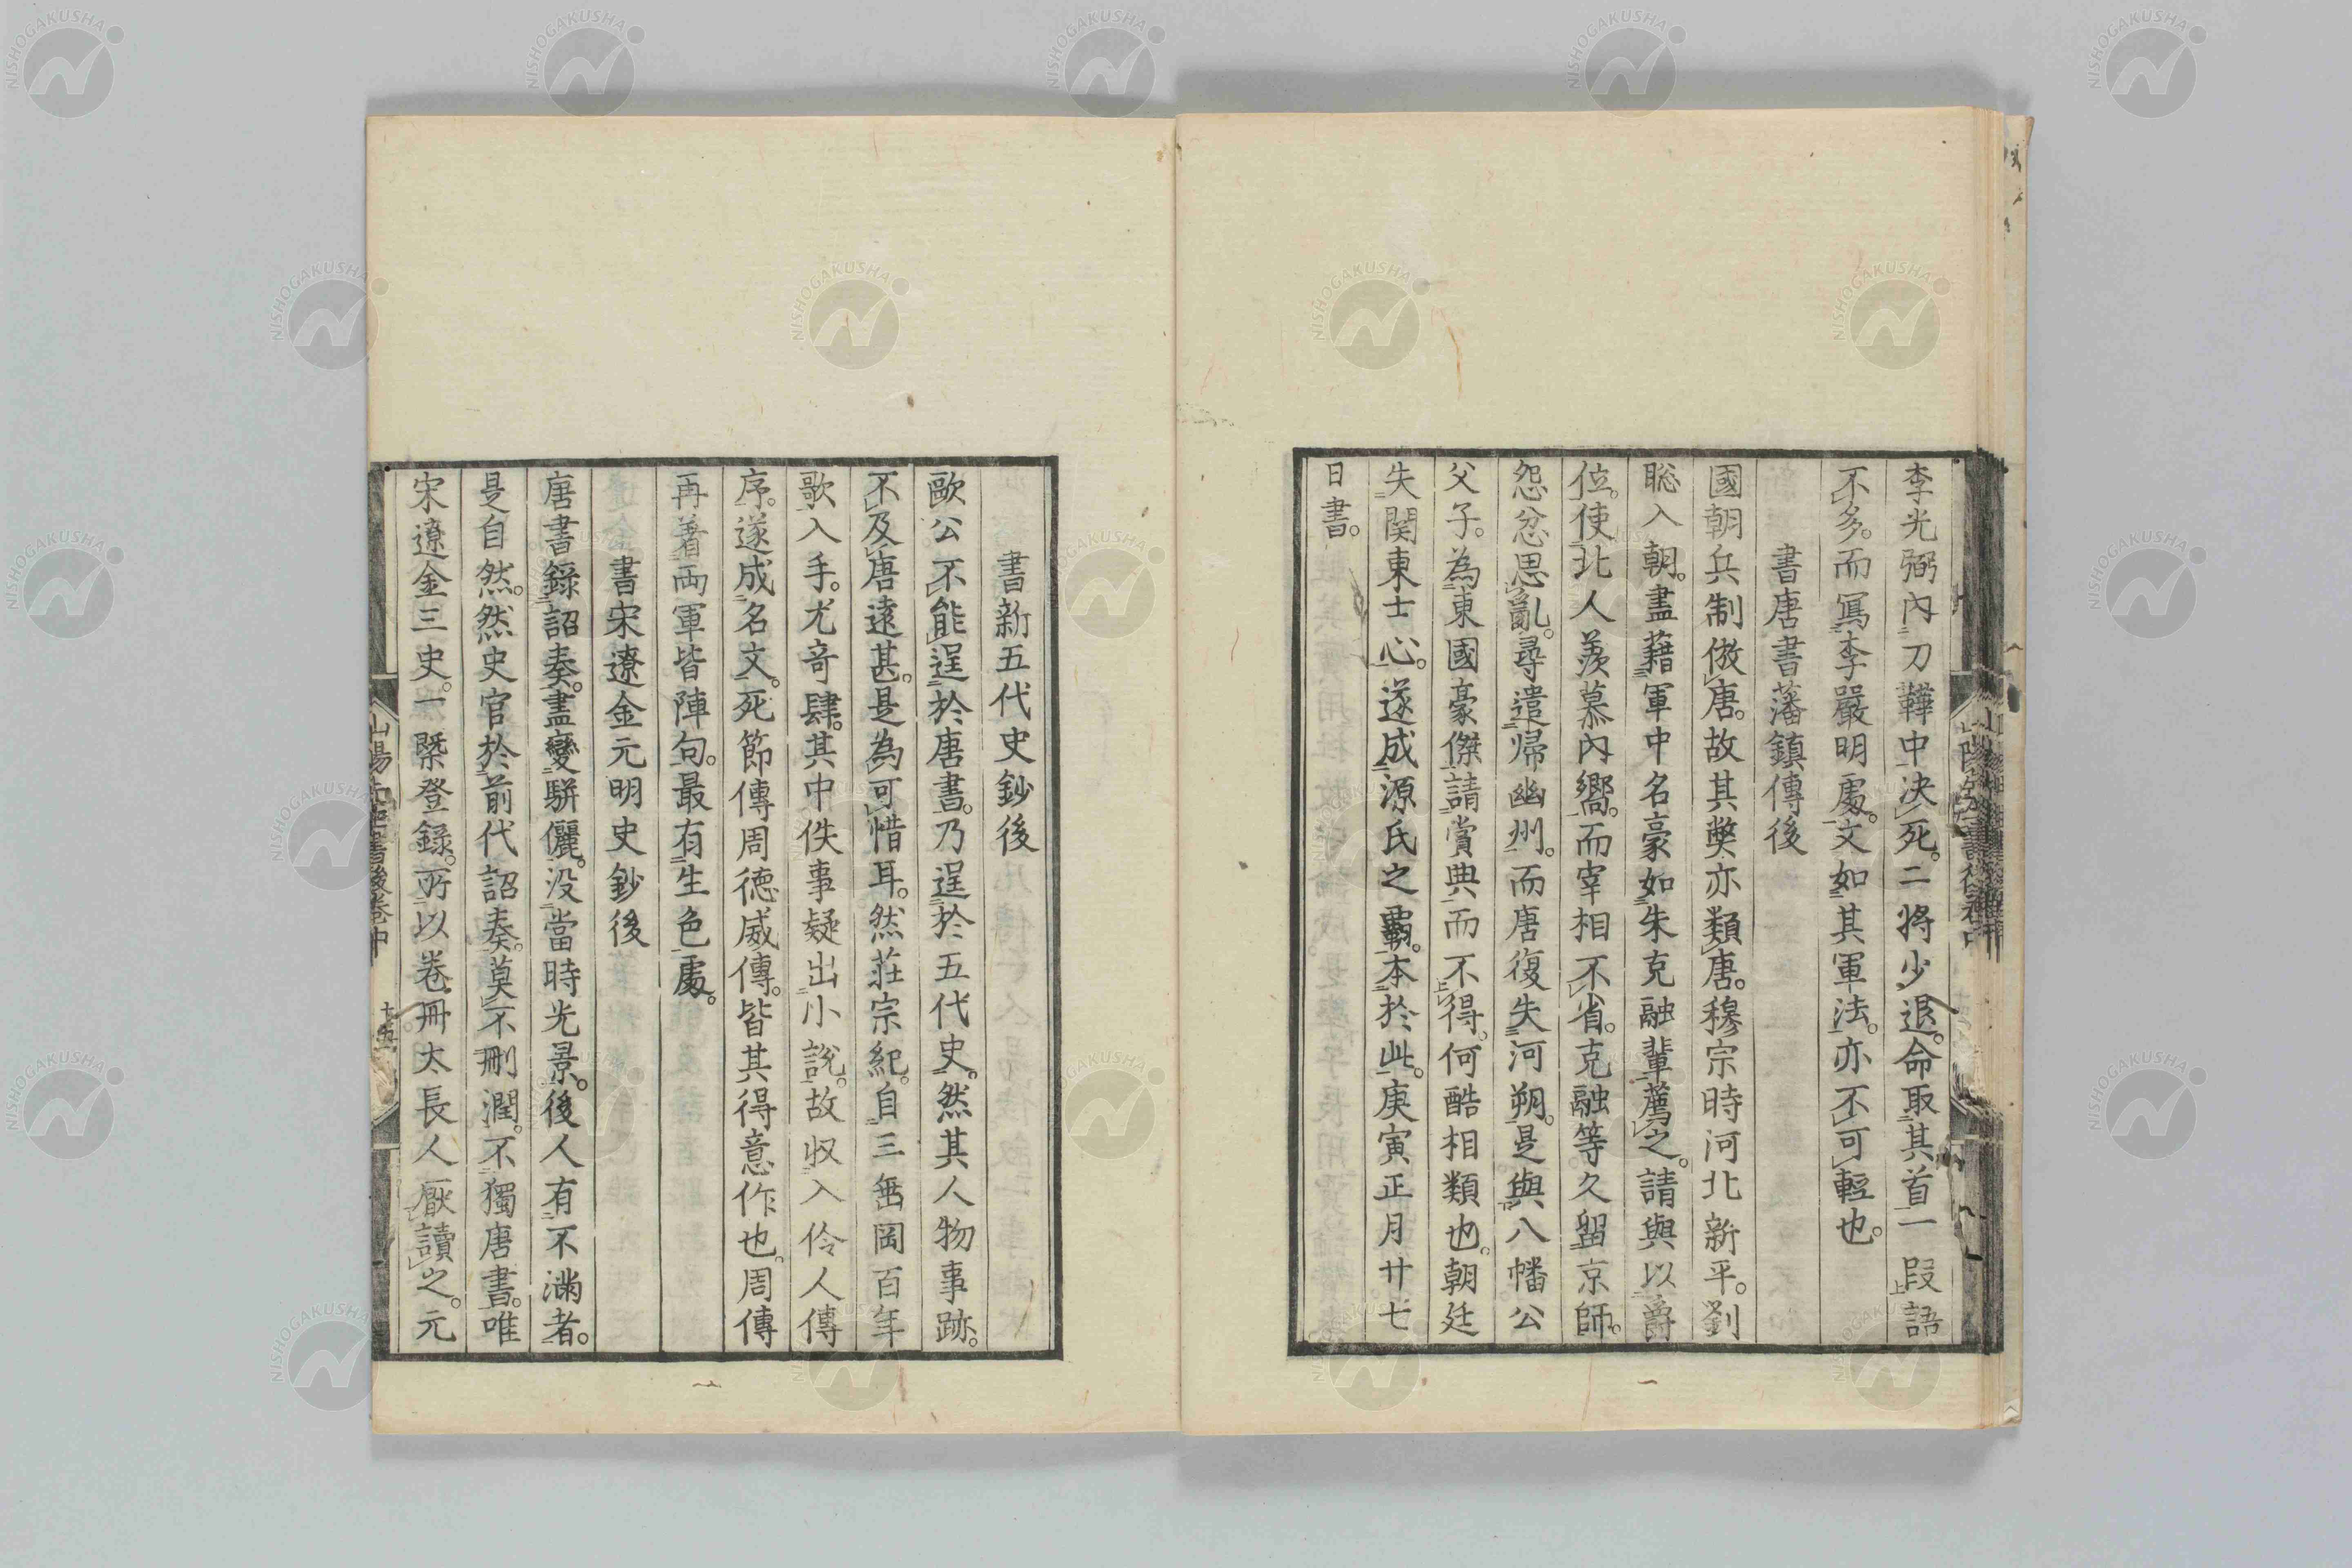 李光弼內刀鞾中決死。二將少退。命取其首一段語
不多。而寫李嚴明處。文如其軍法。亦不可輕也。
書唐書藩鎮傳後
國朝兵制倣唐。故其弊亦類唐。穆宗時河北新平。劉
聡入朝。盡藉軍中名豪如朱克融輩薦之。請與以爵
位。使北人羨慕內嚮。而宰相不省。克融等久留京師。
怨忿思亂。尋遣歸幽州。而唐復失河朔。是與八幡公
父子。為東國豪傑請賞典而不得。何酷相類也。朝廷
失関東士心。遂成源氏之覇。本於此。庚寅正月廿七
日書。
書新五代史鈔後
歐公不能逞於唐書。乃逞於五代史。然其人物事跡。
不及唐遠甚。是為可惜耳。然莊宗紀。自三垂岡百年
歌入手。尤奇肆。其中佚事疑出小說。故収入伶人傳
序。遂成名文。死節傳周德威傳。皆其得意作也。周傳
再著両軍皆陣句。最有生色處。
書宋遼金元明史鈔後
唐書錄詔奏。盡變駢儷。沒當時光景。後人有不滿者。
是自然。然史官於前代詔奏。莫不刪潤。不獨唐書。唯
宋遼金三史。一槩登錄。所以卷冊太長人厭讀之。元
山陽先生書後卷中
十五